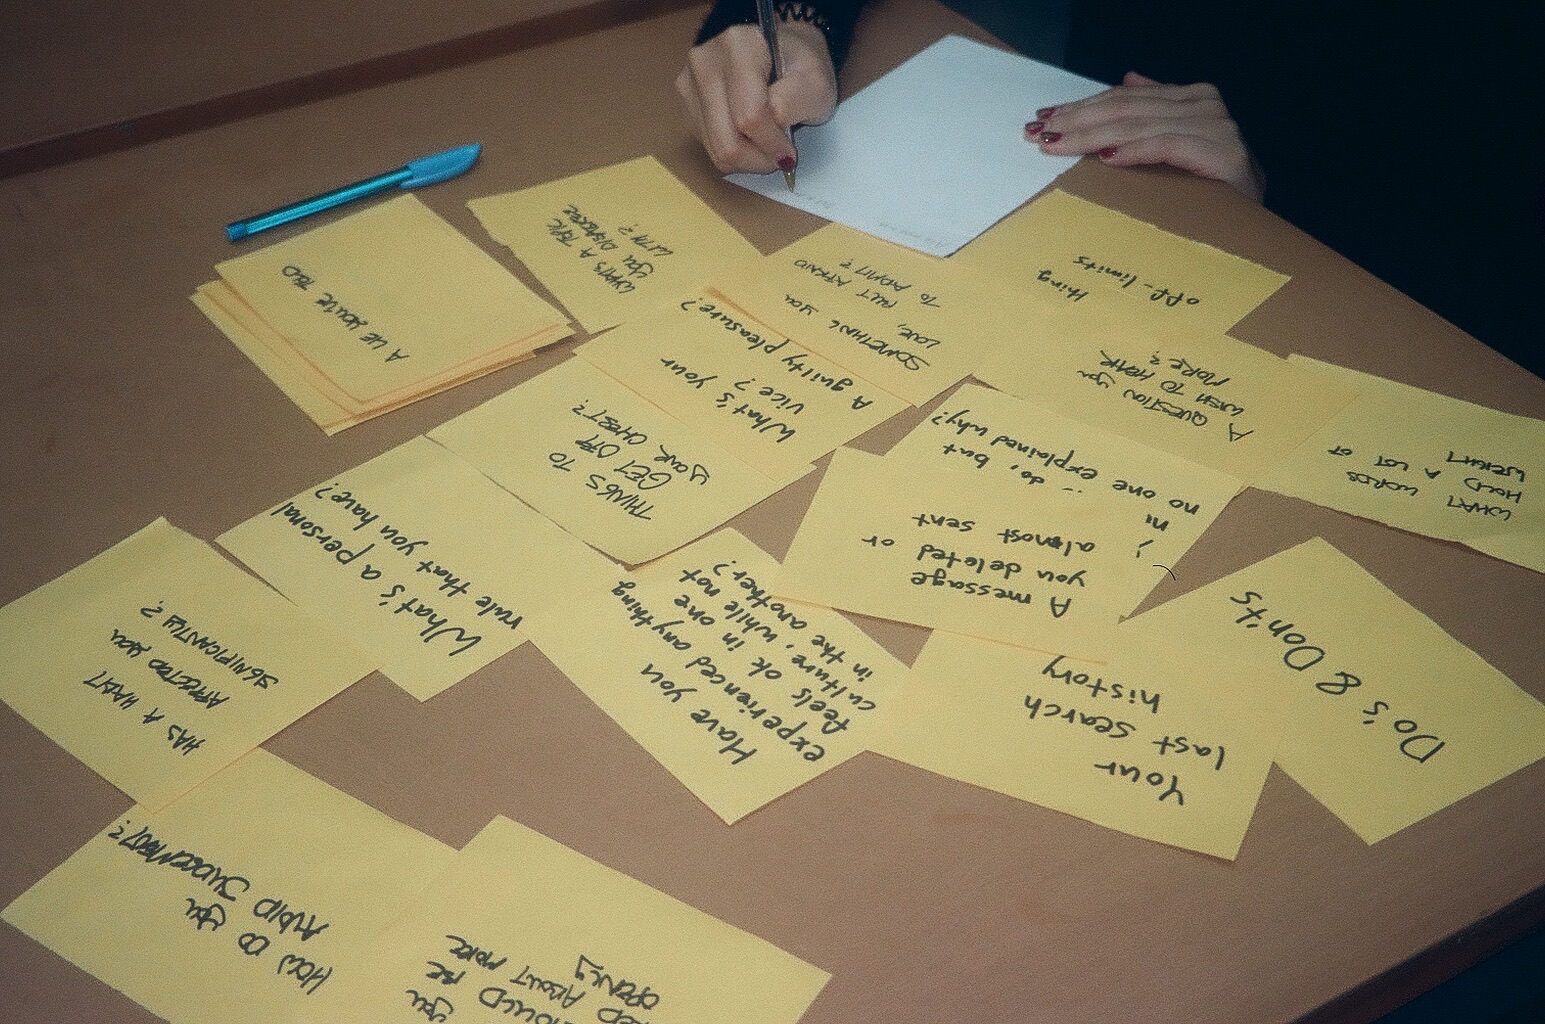 A LIE YOU'VE TOLD
WHAT'S A TOPIC
YOU DISAGREE
WITH?
SOMETHING YOU
LOVE, BUT AFRAID
TO ADMIT?
thing
off-limits
What's your
vice?
A guilty pleasure?
A QUESTION YOU
WISH TO HEAR
MORE?
WHAT WORDS
HOLD A LOT OF
WEIGHT
THINGS TO
GET OFF
YOUR CHEST?
A message
you deleted or
almost sent
"i do, but
no one explained why?
What's a personal
rule that you have?
HAS A HABIT
AFFECTED YOU
SIGNIFICANTLY?
Have you
experienced anything
feels ok in one
culture, while not
in the another?
Your
last search
history
Do's & Don'ts
HOW DO YOU
AVOID JUDGEMENT?
YOU
BE
ABOUT MORE
OPENLY